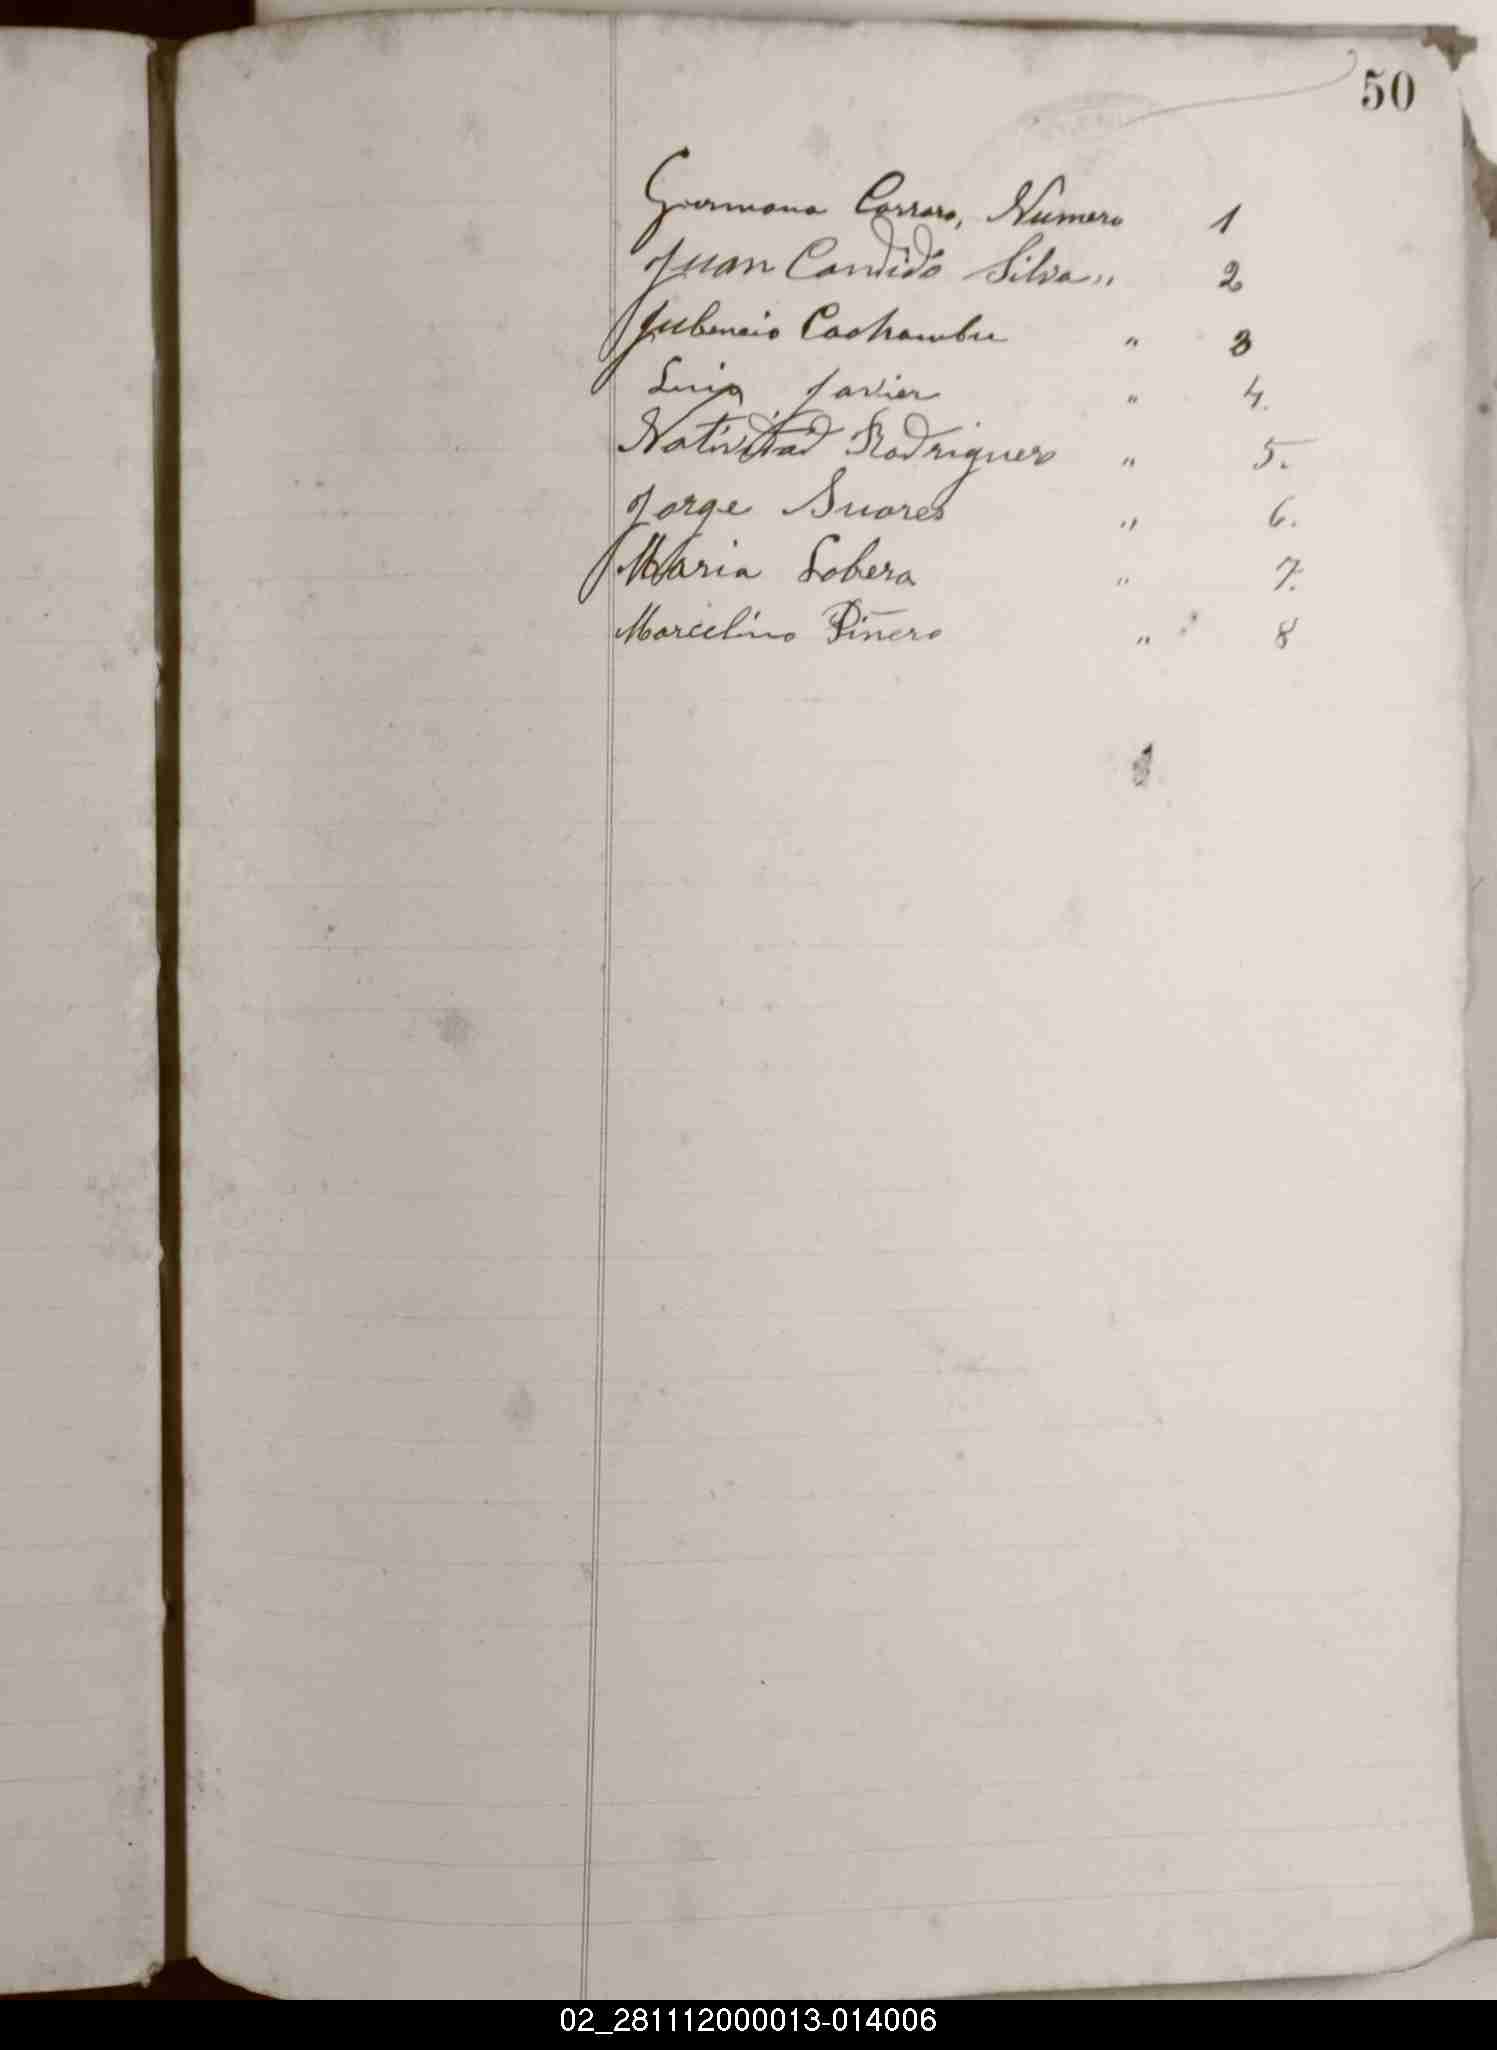 50
Germana Carraro, Numero 1
Juan Candido Silva " 2
Jubencio Cachambu " 3
Luis Javier " 4.
Natividad Rodriguez " 5.
Jorge Suares " 6.
Maria Lobera " 7.
Marcelino Piñero " 8
02_281112000013-014006